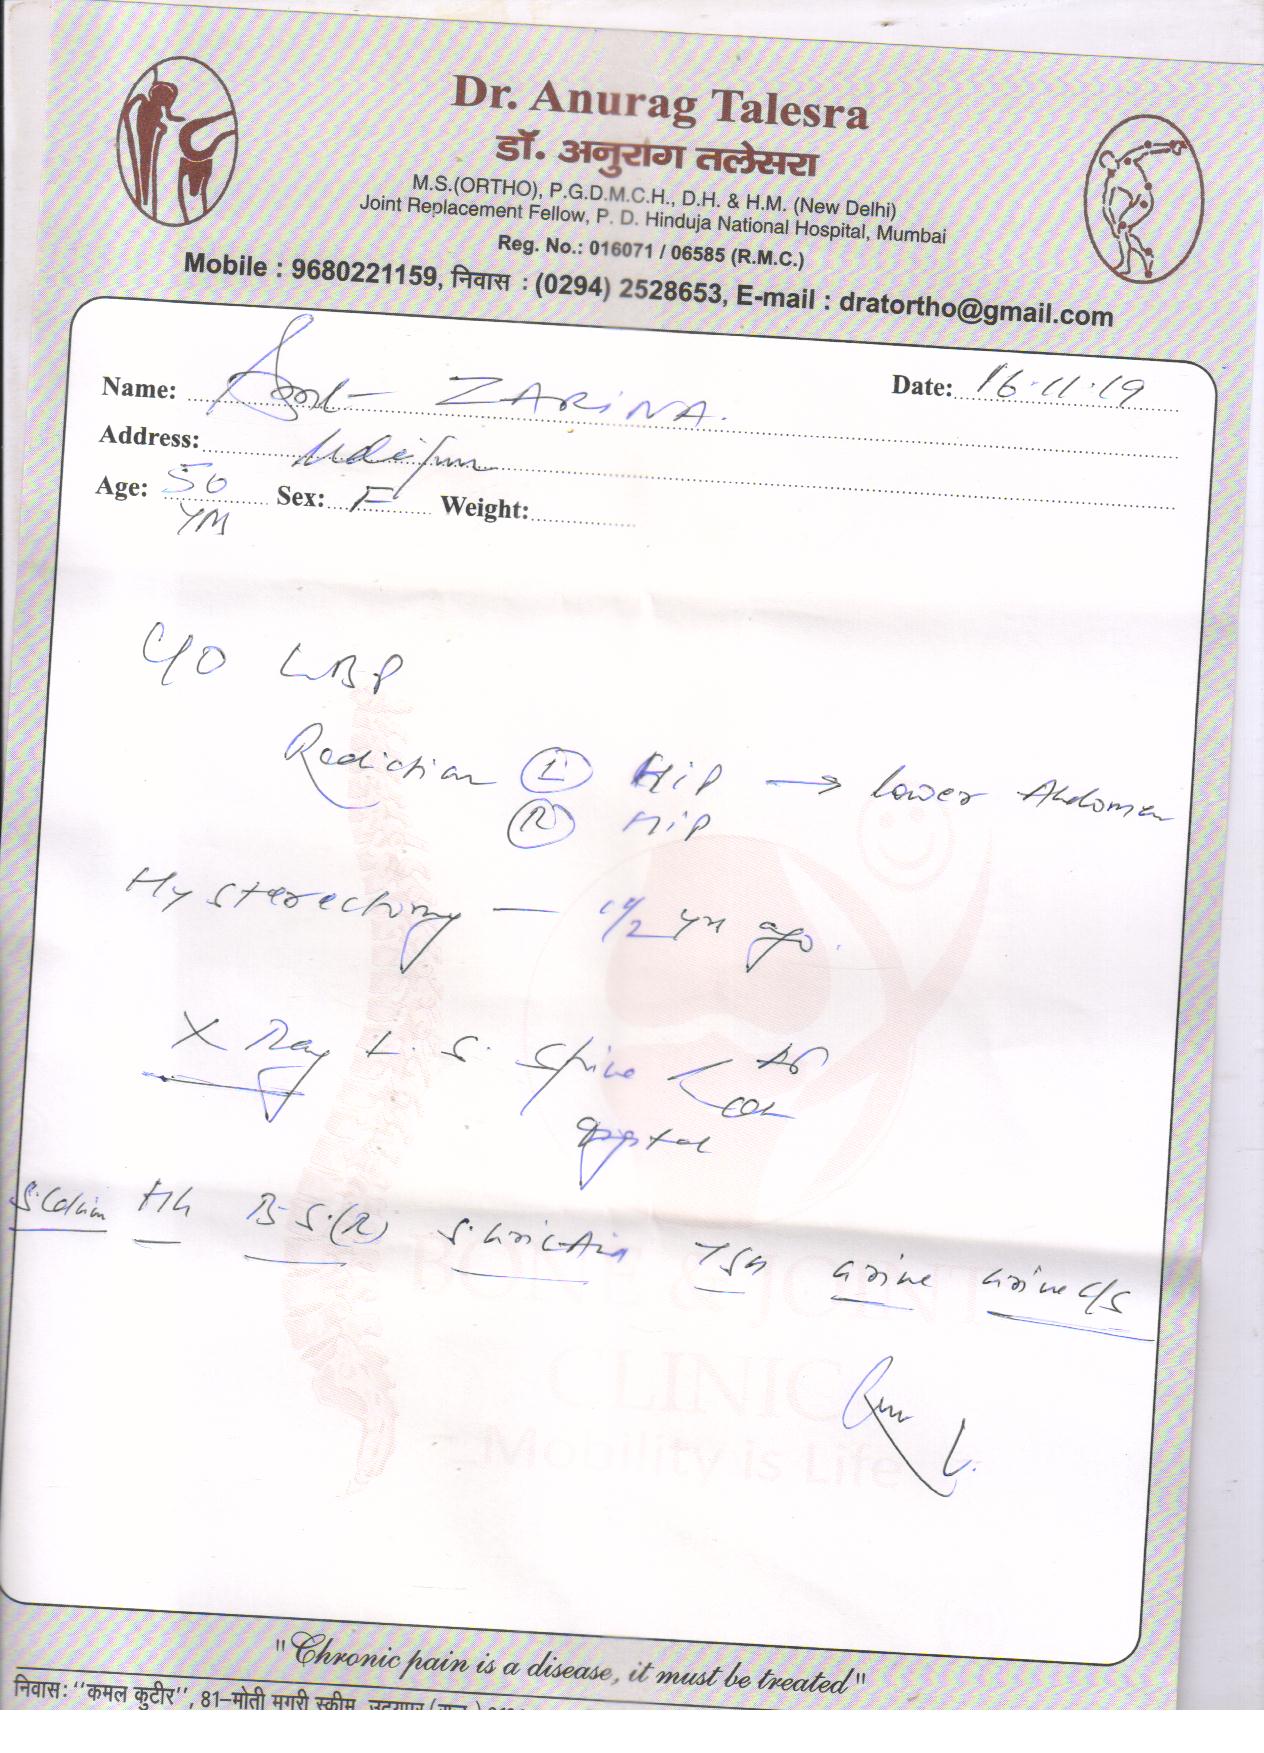 Dr. Anurag Talesra
डॉ. अनुराग तलेसरा
M.S.(ORTHO), P.G.D.M.C.H., D.H. & H.M. (New Delhi)
Joint Replacement Fellow, P. D. Hinduja National Hospital, Mumbai
Reg. No.: 016071 / 06585 (R.M.C.)
Mobile : 9680221159, निवास : (0294) 2528653, E-mail : dratortho@gmail.com
Name: ZARINA. Date: 16.11.19
Address:
Age: 50 Sex: F Weight:
C/O LBP
Radiction (L) Hip → lower Abdomen
(R) Hip
Hysterectomy — yrs ago.
X Ray L. S. Spine
S. Hb B.S.(R) TSH urine urine C/S
BONE & JOINT
CLINIC
Mobility is Life
"Chronic pain is a disease, it must be treated"
निवास: ''कमल कुटीर'', 81-मोती मगरी स्कीम, उदयपुर